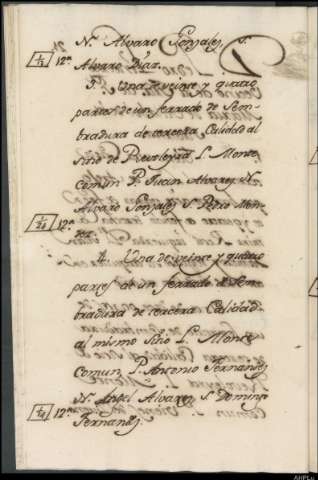 N. Alvaro Gonzalez S.
1/24 12^a Alvaro Diaz.
3. Una de veinte y quatro
partes de un ferrado de Sem-
bradura de tercera Calidad al
Sitio de L. Monte
comun P. Juan Alvarez N.
Alvaro Gonzalez S. Pedro Men-
1/24 12^a dez.
4. Una de veinte y quatro
partes de un ferrado de Sem-
bradura de tercera Calidad
al mismo Sitio L. Monte
Comun P. Antonio Fernandez
N. Angel Alvarez S. Domingo
1/24 12^a Fernandez
AHPLu